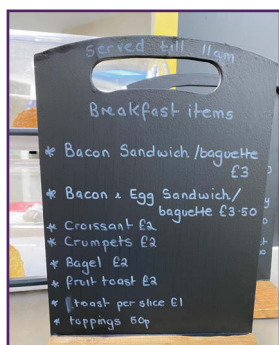 Served till 11am
Breakfast items
* Bacon Sandwich/baguette
£3
* Bacon & Egg Sandwich/
baguette £3.50
* Croissant £2
* Crumpets £2
* Bagel £2
* fruit toast £2
* toast per slice £1
* toppings 50p